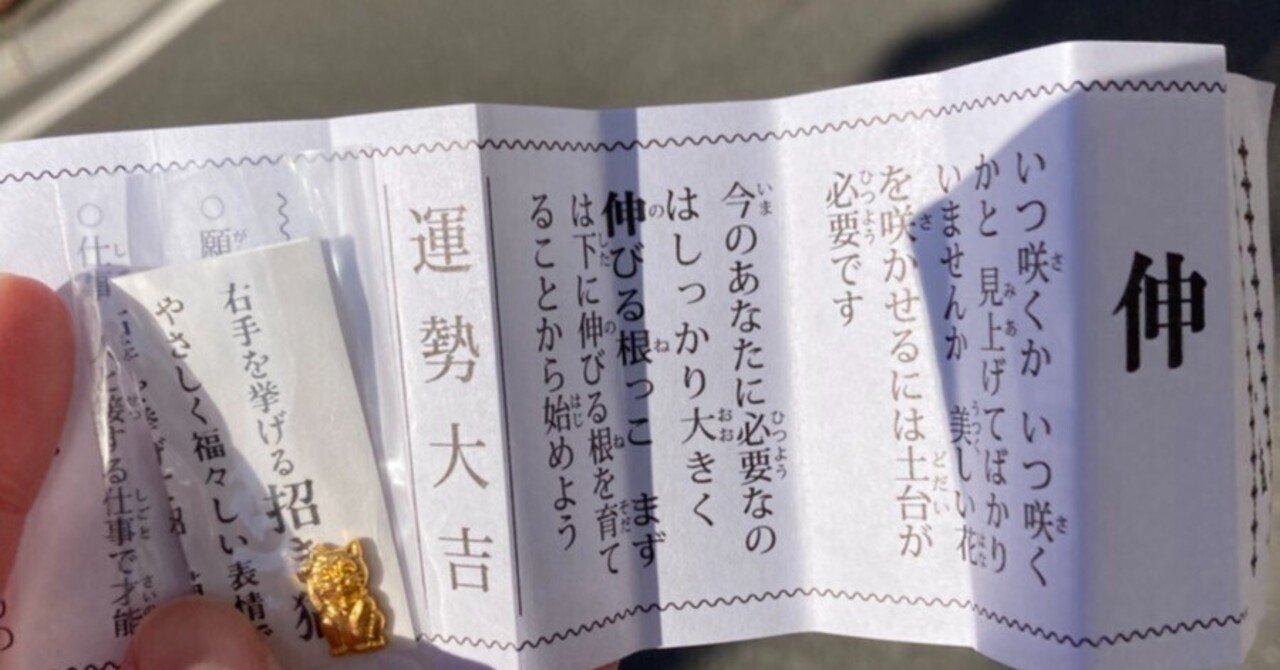 伸
いつ咲くか いつ咲く
かと 見上げてばかり
いませんか 美しい花
を咲かせるには土台が
必要です
今のあなたに必要なの
はしっかり大きく
伸びる根っこ まず
は下に伸びる根を育て
ることから始めよう
運勢大吉
○願
○仕事
接する仕事で才能
右手を挙げる招き猫
やさしく福々しい表情で